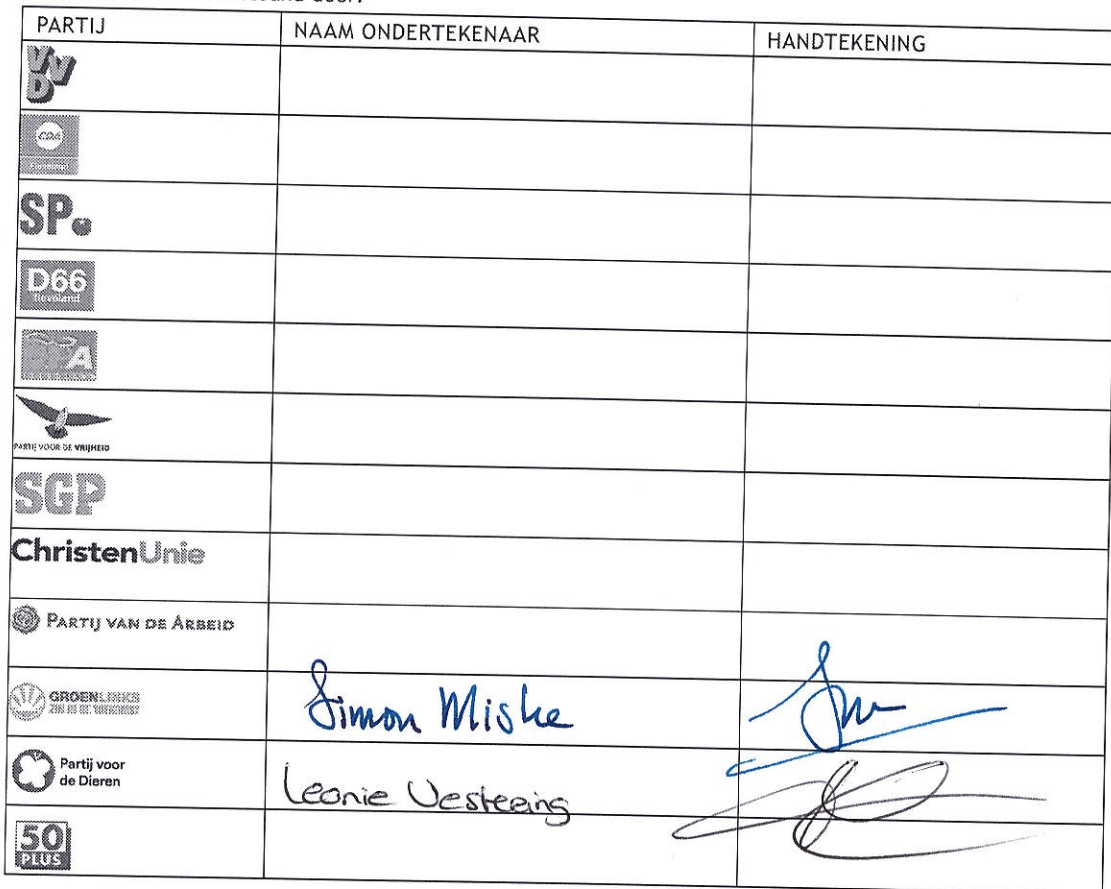 door:
PARTIJ NAAM ONDERTEKENAAR HANDTEKENING
VVD
CDA
SP.
D66
flevoland
PARTIJ VOOR DE VRIJHEID
SGP
ChristenUnie
PARTIJ VAN DE ARBEID
GROENLINKS Simon Miske
Partij voor
de Dieren
Leonie Vesteeing
50
PLUS